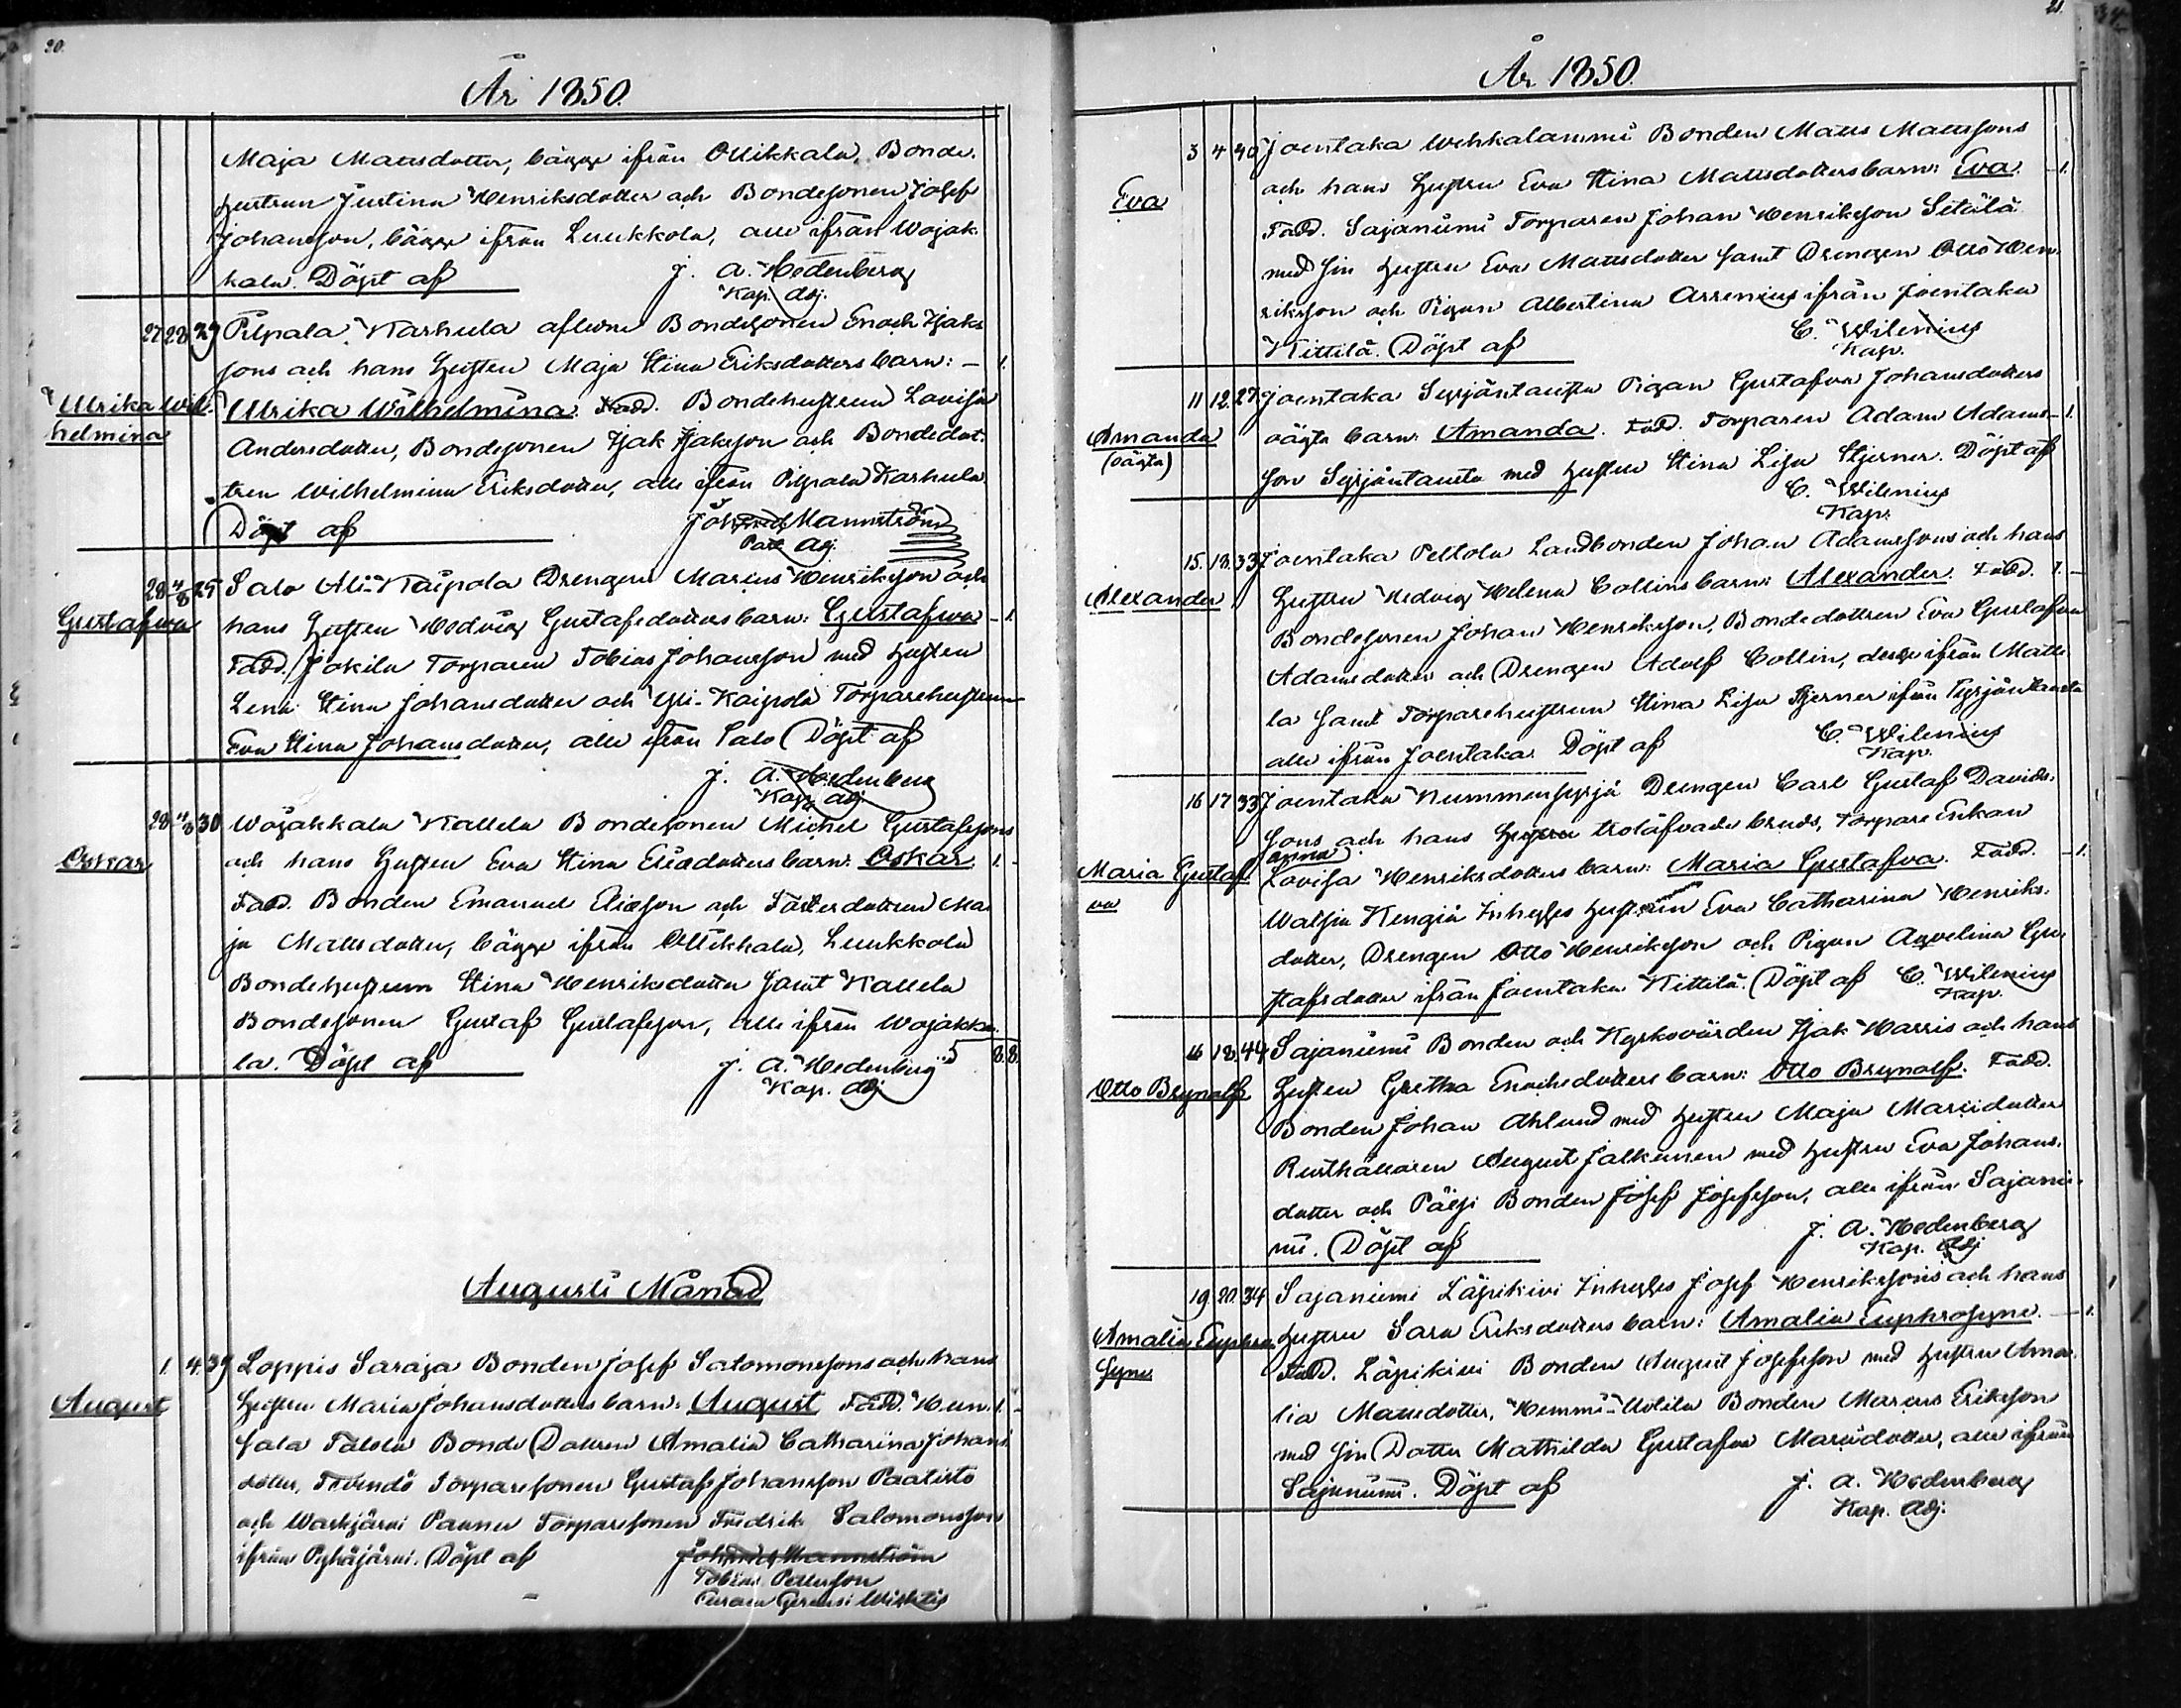 20.
År 1850.
Maja Mattsdotter, bägge ifrån Ollikkala, Bonde-
hustrun Justina Henriksdotter och Bondesonen Josef
Johansson, bägge ifrån Luukkola, alle ifrån Wojak-
kala. Döpt af J. A. Hedenberg
Kap. Adj.
27 28 39 Pilpala Karhula aflidne Bondesonen Enoch Isaks
sons och hans Hustru Maja Stina Eriksdotters barn: – 1.
Ulrika Wil- Ulrika Wilhelmina. Fadd. Bondehustrun Lovisa
helmina Andersdotter, Bondesonen Isak Isaksson och Bondedot-
tren Wilhelmina Eriksdotter, alle ifrån Pilpala Karhula.
Döpt af Johannes Mannström
Past. Adj.
28 4/8 25 Salo Ali-Kaipola Drengen Marius Henriksson och
Gustafwa hans Hustru Hedvig Gustafsdotters barn: Gustafwa – 1.
Fadd. Jokila Torparen Tobias Johansson med hustru
Lena Stina Johansdotter och Yli-Kaipola Torparehustrun
Eva Stina Johansdotter, alle ifrån Salo Döpt af
J. A. Hedenberg
Kap. adj.
28 4/8 30 Wojakkala Kallela Bondesonen Michel Gustafssons
Oskar och hans Hustru Eva Stina Eliædotters barn: Oskar 1. –
Fadd. Bonden Emanuel Eliæson och Fosterdottren Ma-
ja Mattsdotter, bägge ifrån Ollikkala, Luukkola
Bondehustrun Stina Henriksdotter samt Kallela
Bondesonen Gustaf Gustafsson, alle ifrån Wojakka-
la. Döpt af J. A. Hedenberg 8. 8.
Kap. Adj.
Augusti Månad
1. 4. 39 Loppis Saraja Bonden Josef Salomonssons och hans
August Hustru Maria Johansdotters barn: August Fadd. Hun- 1. –
sala Tatola Bonde Dottren Amalia Catharina Johans
dotter, Torparesonen Gustaf Johansson Paatisto
och Waskjärvi Torparesonen Fredrik Salomonsson
ifrån Pyhäjärvi. Döpt af Johannes Mannström
Tobias Pettersson
21.
År 1850.
3 4 40 Joentaka Wehkalammi Bonden Matts Mattssons
Eva och hans Hustru Eva Stina Mattsdotters barn: Eva. – 1.
Fadd. Sajaniemi Torparen Johan Henriksson Seitälä
med sin hustru Eva Mattsdotter samt Drengen Otto Hen-
riksson och Pigan Albertina Arrenius ifrån Joentaka
Kittilä. Döpt af C. Wilenius
Kap.
11 12. 27. Joentaka Syrjäntausta Pigan Gustafva Johansdotters
Amanda oägta barn: Amanda. Fadd. Torparen Adam Adams- – 1.
(oägta) son Syrjäntausta med hustru Stina Lisa Stjerner. Döpt af
C. Wilenius
Kap.
15. 18. 33 Joentaka Peltola Landbonden Johan Adamssons och hans
Alexander Hustru Hedvig Helena Collins barn: Alexander. Fadd. 1. –
Bondesonen Johan Henriksson, Bondedottren Eva Gustafva
Adamsdotter och Drengen Adolf Collin, desse ifrån Matti-
la samt Torparehustrun Stina Lisa Stjerner ifrån Syrjäntausta
alle ifrån Joentaka. Döpt af C. Wilenius
Kap.
16 17 33 Joentaka Nummensyrjä Drengen Carl Gustaf Davids-
sons och hans Hustru trolofvade bruds, Torpare Enkan
Maria Gustaf- Anna Lovisa Henriksdotters barn: Maria Gustafva. Fadd. – 1.
va Walsia Kengiä Inhyses Hustrun Eva Catharina Henriks-
dotter, Drengen Otto Henriksson och Pigan Aqvelina Gu-
stafsdotter ifrån Joentaka Kittilä. Döpt af C. Wilenius
Kap.
16 18. 44 Sajaniemi Bonden och Kyrkovärden Isak Harris och hans
Otto Brynolf Hustru Gretha Enochsdotters barn: Otto Brynolf. Fadd.
Bonden Johan Ahlund med hustru Maja Mariidotter
Rusthållaren August Jalkanen med hustru Eva Johans-
dotter och Päiji Bonden Josef Josefsson, alle ifrån Sajanie-
mi. Döpt af J. A. Hedenberg
Kap. Adj
19 20. 34 Sajaniemi Läpikivi Inhyses Josef Henrikssons och hans
Amalia Euphro- Hustru Sara Eriksdotters barn: Amalia Euphrosyne. – 1.
syne Fadd. Läpikivi Bonden August Josefsson med hustru Ama-
lia Mattsdotter, Hemmi-Uotila Bonden Marius Eriksson
med sin Dotter Mathilda Gustafva Mariidotter, alle ifrån
Sajaniemi. Döpt af J. A. Hedenberg
Kap. Adj.